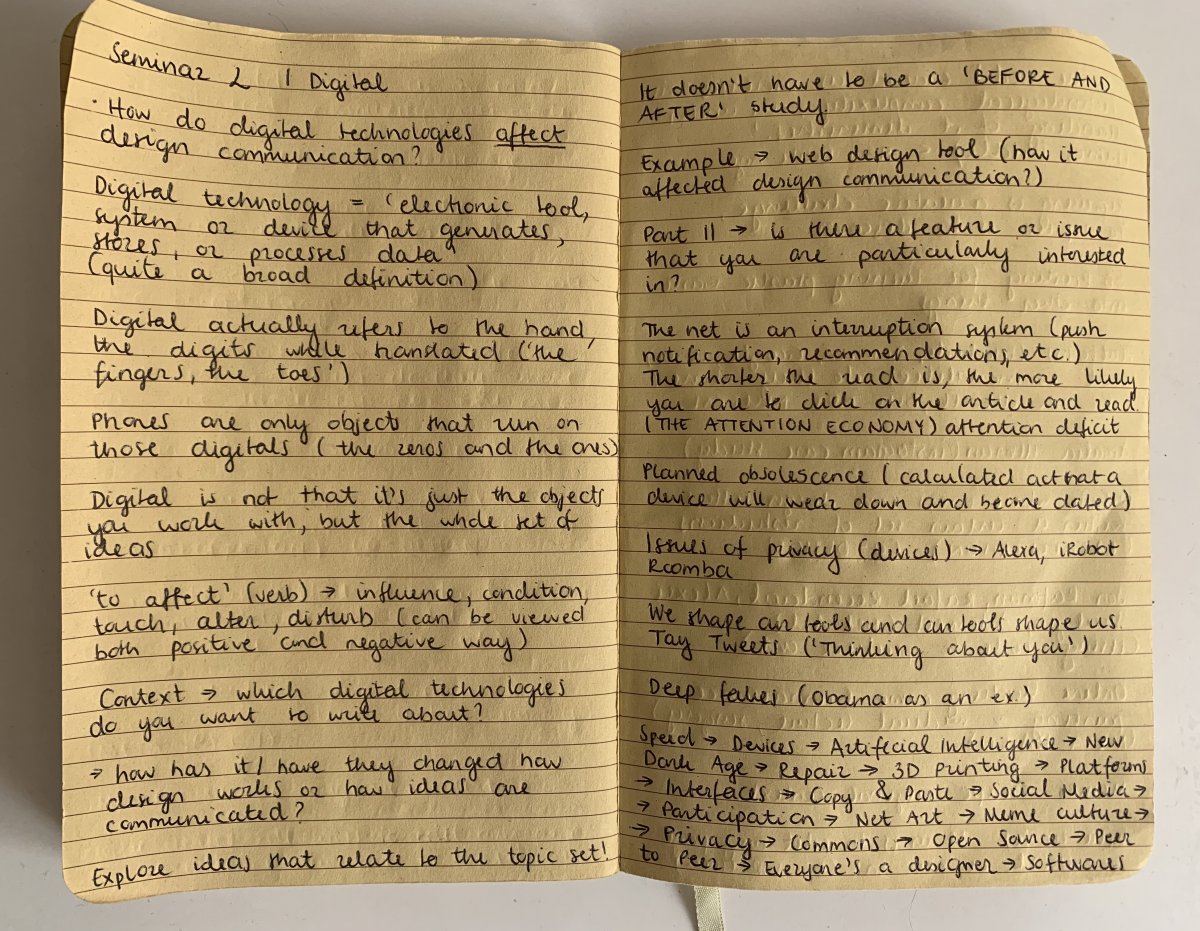 Seminar 2 | Digital
· How do digital technologies affect
design communication?
Digital technology = 'electronic tool,
system or device that generates,
stores, or processes data'
(quite a broad definition)
Digital actually refers to the hand,
the digits while translated ('the
fingers, the toes')
Phones are only object that run on
those digitals (the zeros and the ones)
Digital is not that it's just the objects
you work with, but the whole set of
ideas
'to affect' (verb) → influence, condition,
touch, alter, disturb (can be viewed
both positive and negative way)
Context → which digital technologies
do you want to write about?
→ how has it / have they changed how
design works or how ideas are
communicated?
Explore ideas that relate to the topic set!
It doesn't have to be a 'BEFORE AND
AFTER' study
Example → web design tool (how it
affected design communication?)
Part II → is there a feature or issue
that you are particularly interested
in?
The net is an interruption system (push
notification, recommendations, etc.)
The shorter the read is, the more likely
you are to click on the article and read.
(THE ATTENTION ECONOMY) attention deficit
Planned obsolescence (calculated act that a
device will wear down and become dated)
Issues of privacy (devices) → Alexa, iRobot
Roomba
We shape our tools and our tools shape us
Tay Tweets ('Thinking about you')
Deep fakes (Obama as an ex.)
Speed → Devices → Artifecial Intelligence → New
Dark Age → Repair → 3D Printing → Platforms
→ Interfaces → Copy & Paste → Social Media →
→ Participation → Net Art → Meme culture →
→ Privacy → Commons → Open Source → Peer
to Peer → Everyone's a designer → Softwares